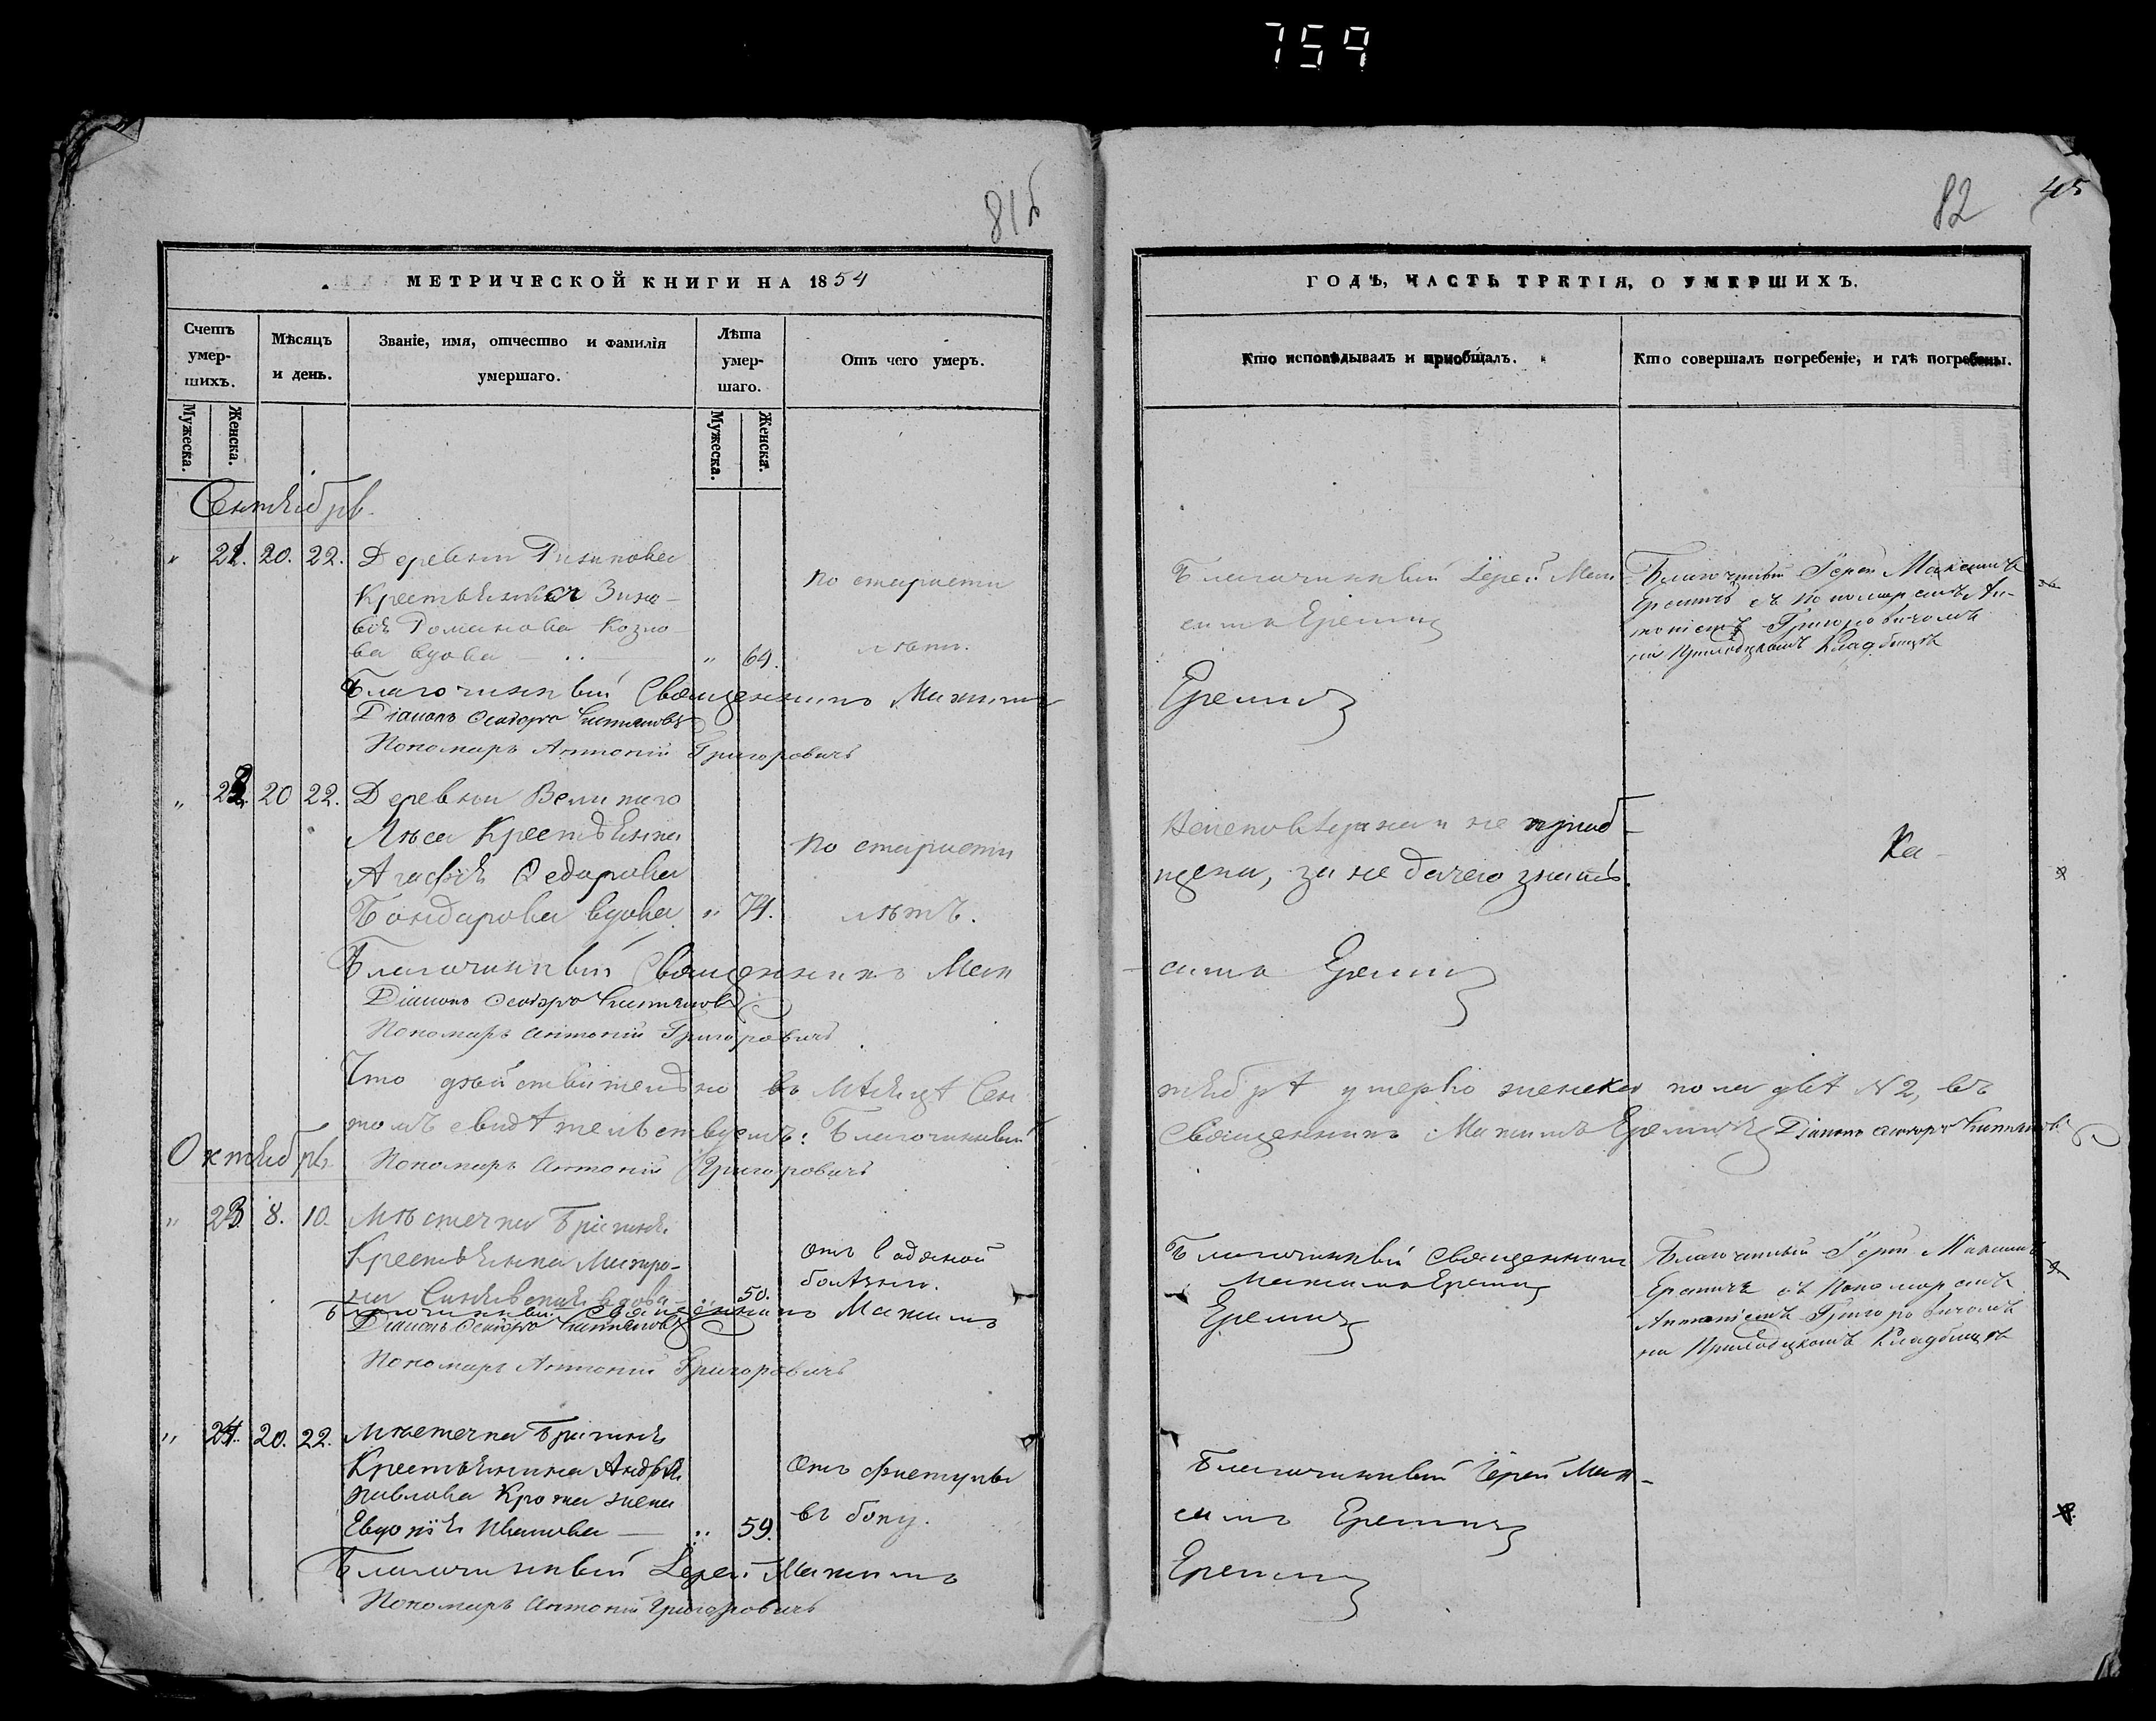 759
81б
МЕТРИЧЕСКОЙ КНИГИ НА 1854
Счетъ умер-шихъ.
Мѣсяцъ и день.
Званіе, имя, отчество и фамилія умершаго.
Лѣта умер-шаго.
Отъ чего умеръ.
Мужеска.
Женска.
Мужеска.
Женска.
Сентябрь.
" 21. 20. 22. Деревни
Крестьянка Зино-
вія Романова Козло-
ва вдова " 64.
По старости
лѣтъ.
Благочинный Священникъ Максимъ
Діаконъ Ѳеодоръ
Пономарь Антоній Григоровичъ
" 22. 20 22. Деревни Великаго
Лѣса Крестьянка
Агафія Ѳедорова
Бондарова вдова " 74.
По старости
лѣтъ.
Благочинный Священникъ Мак
Діаконъ Ѳеодоръ
Пономарь Антоній Григоровичъ
Что дѣйствительно въ Мѣсяцѣ Сен
томъ свидѣтельствуемъ: Благочинный
Октябрь.
Пономарь Антоній Григоровичъ
" 23. 8. 10. Мѣстечка Брагиня
Крестьянка Матро-
на вдова " 50.
Отъ водяной
болѣзни.
Благочинный Священникъ Максимъ
Діаконъ Ѳеодоръ
Пономарь Антоній Григоровичъ
" 24. 20. 22. Мѣстечка Брагиня
Крестьянина Андрея
Павлова Крота жена
Евдокія Иванова " 59.
Отъ фистулы
въ боку.
Благочинный Іерей Максимъ
Пономарь Антоній Григоровичъ
82
45
ГОДЪ, ЧАСТЬ ТРЕТІЯ, О УМЕРШИХЪ.
Кто исповѣдывалъ и пріобщалъ.
Кто совершалъ погребеніе, и гдѣ погребены.
Благочинный Іерей Мак-
симъ Еремичъ
Благочинный Іерей Максимъ
Еремичъ съ Пономаремъ Ан-
тоніемъ Григоровичомъ
на Приходскомъ Кладбищѣ
Еремичъ
Неисповѣдана и не пріоб-
щена, за не дачею знать.
Ка-
симъ Еремичъ
тябрѣ умерло женска пола двѣ N 2, въ
Священникъ Максимъ Еремичъ Діаконъ Ѳеодоръ
Благочинный Священникъ
Максимъ Еремичъ
Благочинный Іерей Максимъ
Еремичъ съ Пономаремъ
Антоніемъ Григоровичомъ
на Приходскомъ Кладбищѣ
Еремичъ
Благочинный Іерей Мак-
симъ Еремичъ
Еремичъ